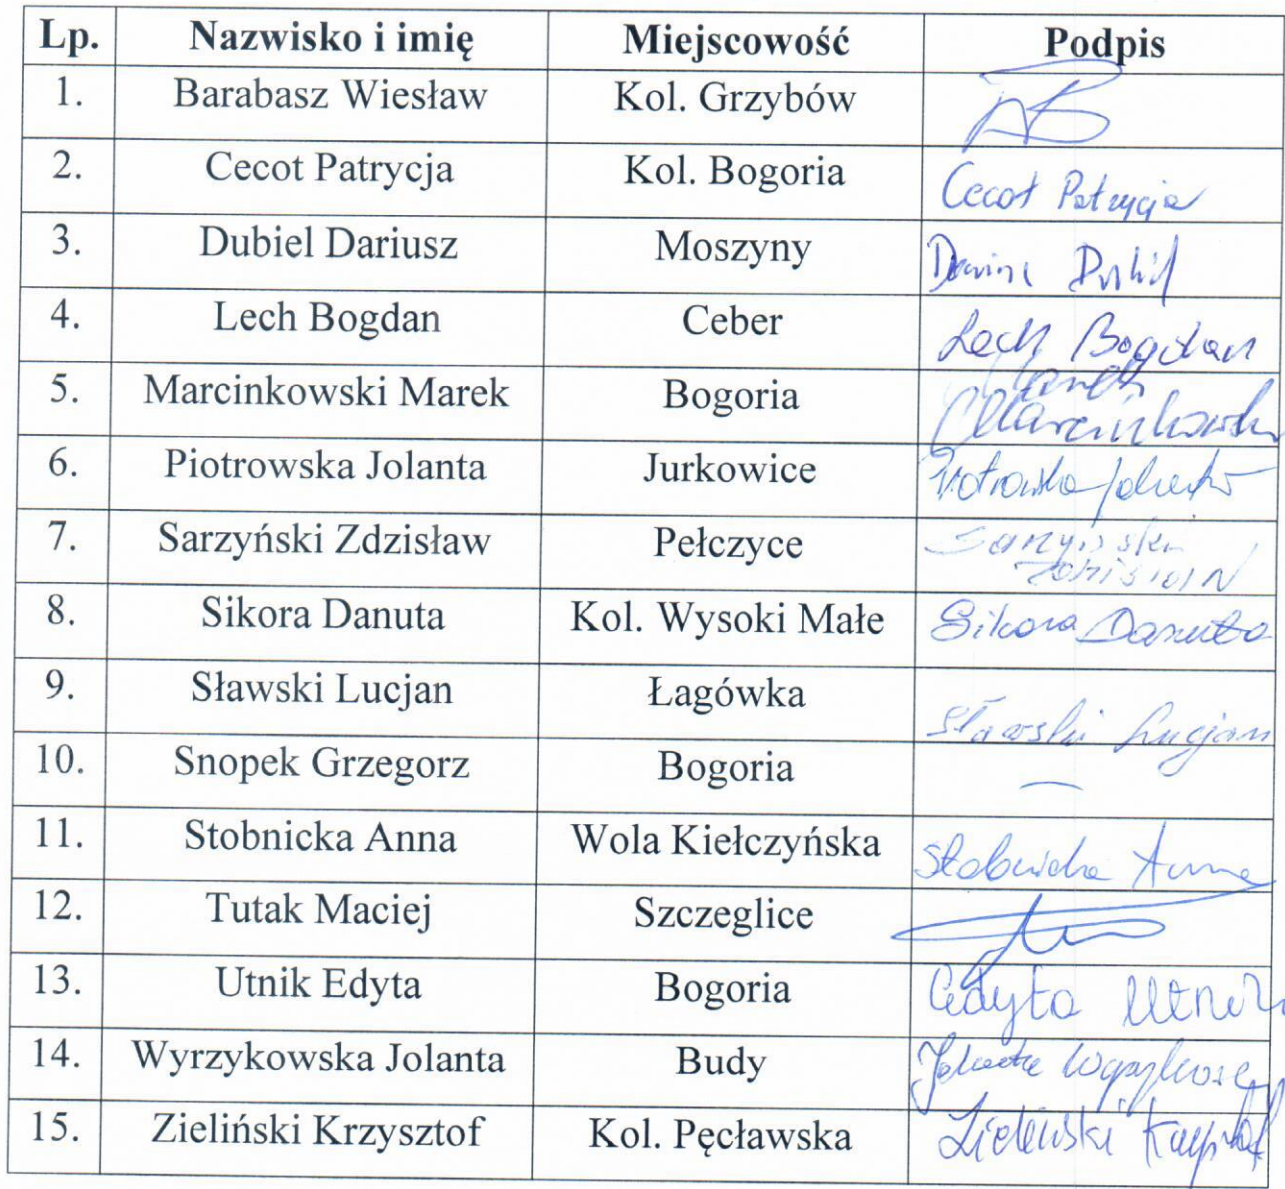 Lp. Nazwisko i imię Miejscowość Podpis
1. Barabasz Wiesław Kol. Grzybów
2. Cecot Patrycja Kol. Bogoria Cecot Patrycja
3. Dubiel Dariusz Moszyny
4. Lech Bogdan Ceber Lech Bogdan
5. Marcinkowski Marek Bogoria Marek Marcinkowski
6. Piotrowska Jolanta Jurkowice Piotrowska Jolanta
7. Sarzyński Zdzisław Pełczyce Sarzyński
Zdzisław
8. Sikora Danuta Kol. Wysoki Małe Sikora Danuta
9. Sławski Lucjan Łagówka Sławski Lucjan
10. Snopek Grzegorz Bogoria —
11. Stobnicka Anna Wola Kiełczyńska Stobnicka Anna
12. Tutak Maciej Szczeglice
13. Utnik Edyta Bogoria Edyta Utnik
14. Wyrzykowska Jolanta Budy Jolanta Wyrzykowska
15. Zieliński Krzysztof Kol. Pęcławska Zieliński Krzysztof